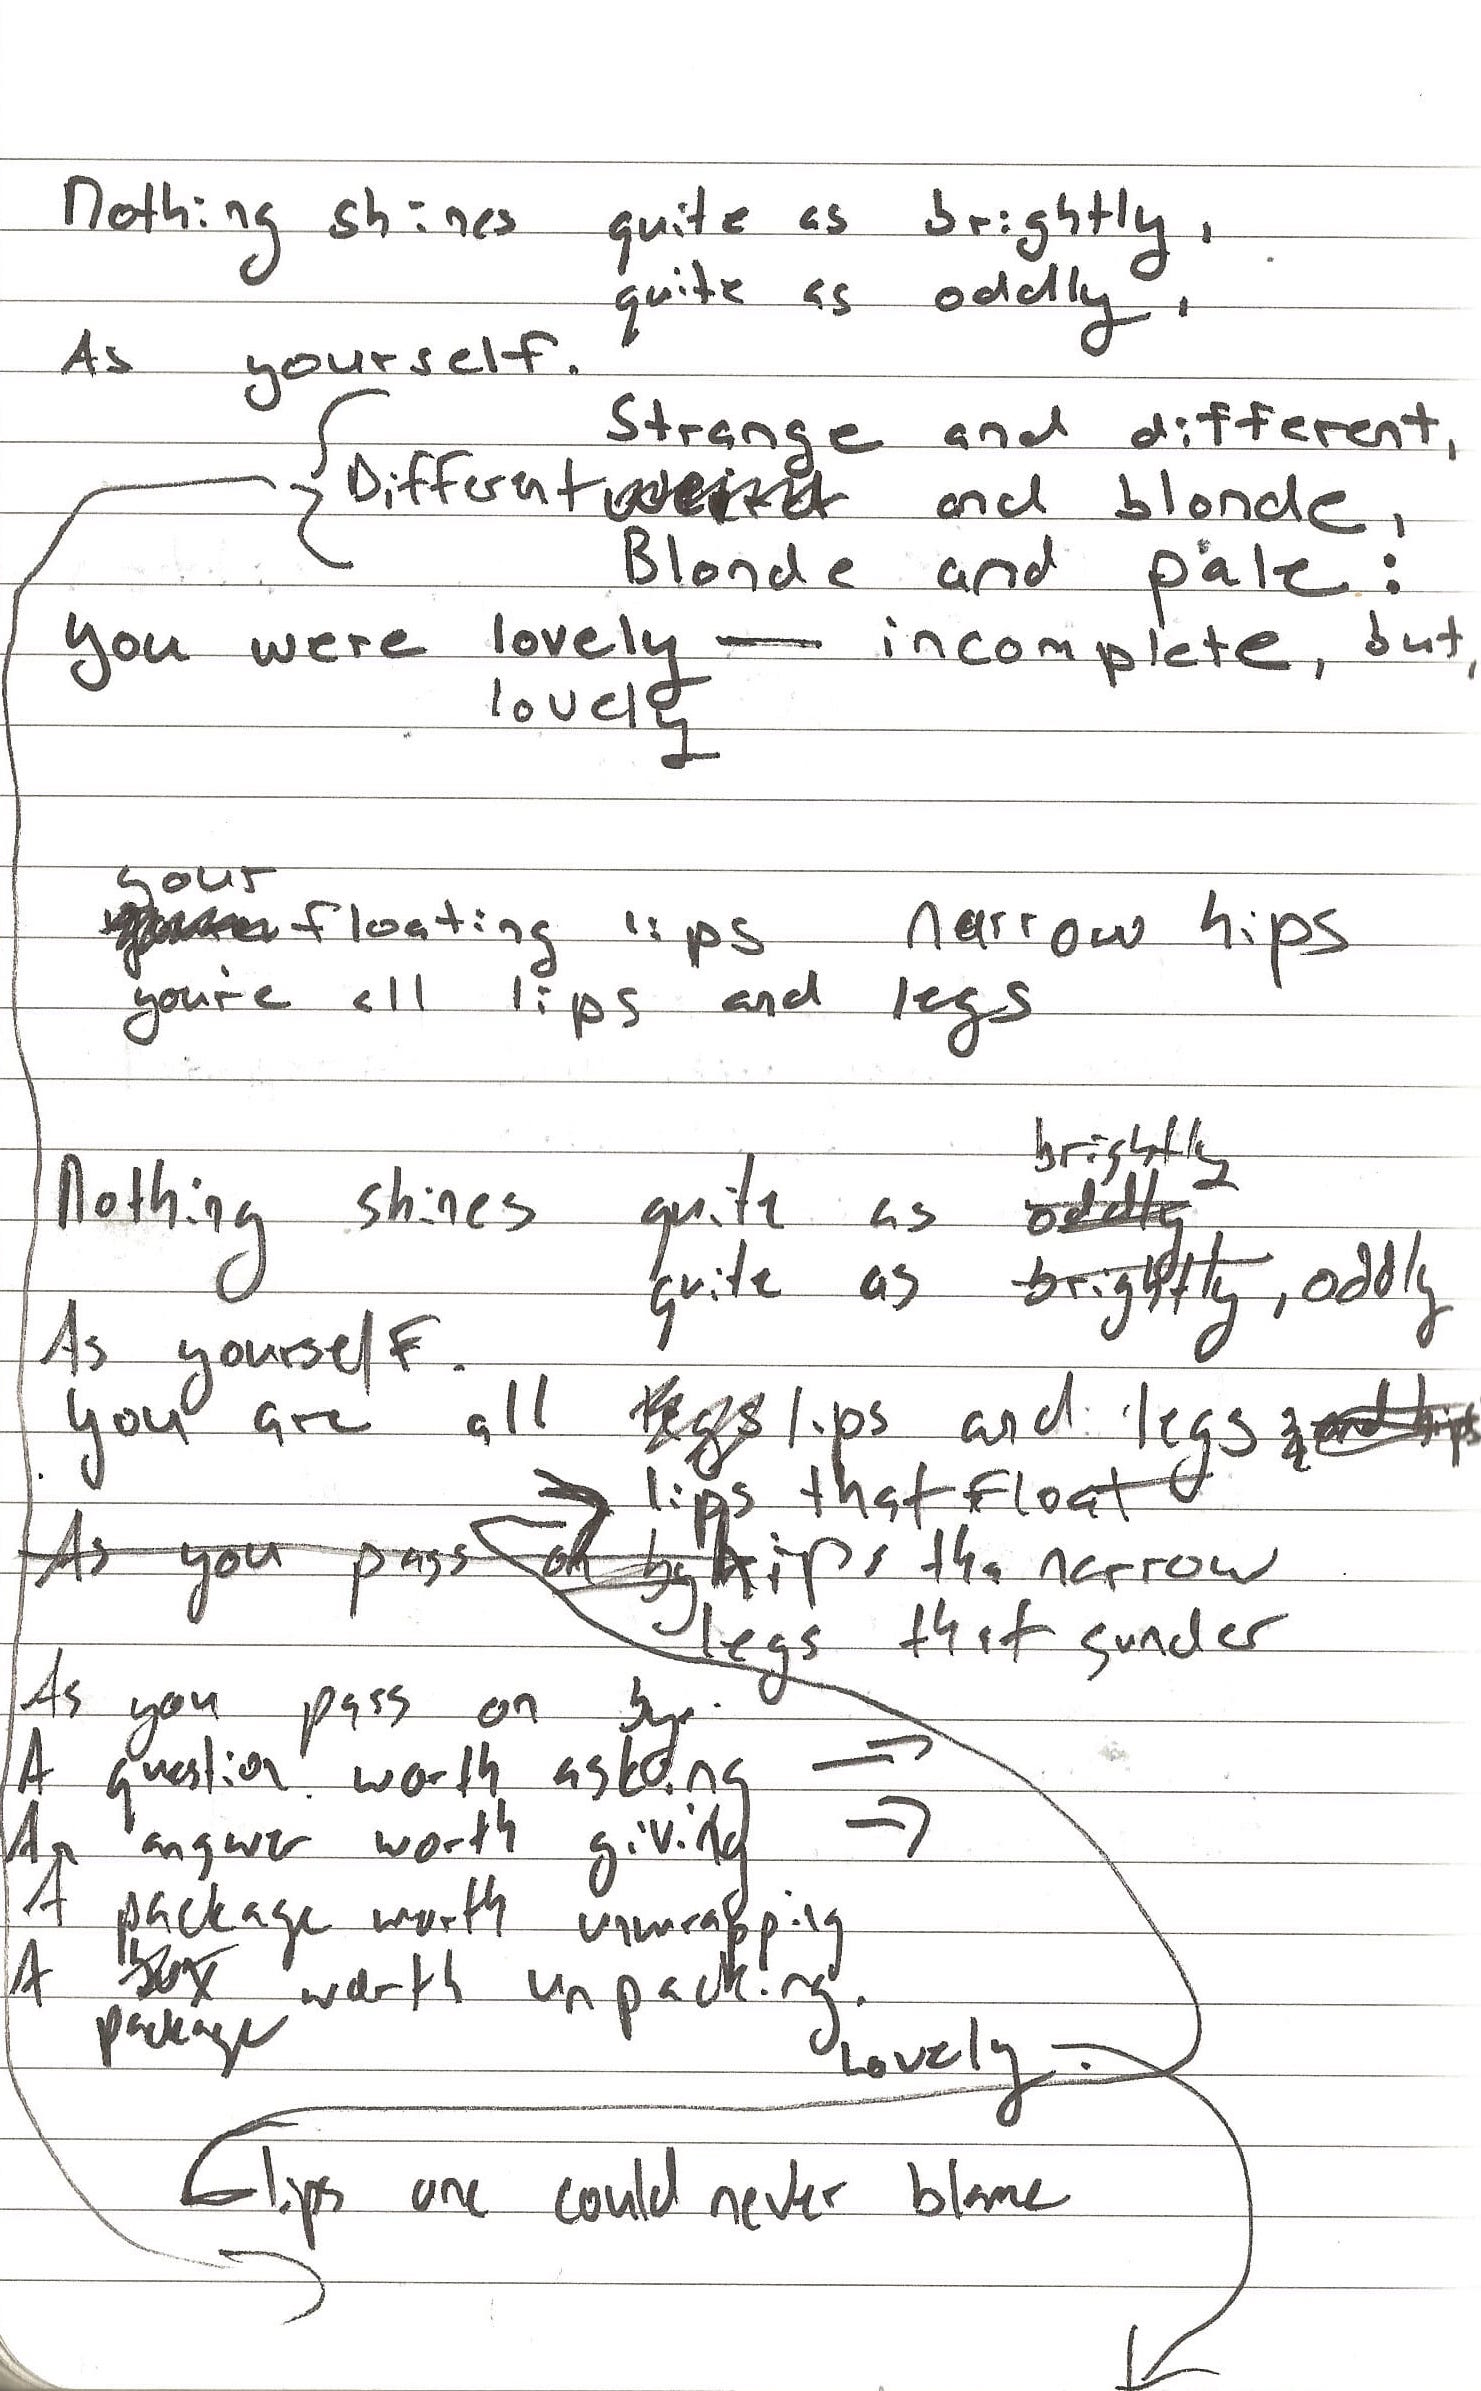 Nothing shines quite as brightly,
quite as oddly,
As yourself.
Strange and different,
Different weird and blonde,
Blonde and pale:
you were lovely — incomplete, but,
lovely
your
floating lips narrow hips
you're all lips and legs
brightly
Nothing shines quite as oddly
quite as brightly, oddly
As yourself.
you are all legs lips and legs and hips
lips that float
As you pass on by hips tha narrow
legs that sunder
As you pass on by.
A question worth asking →
An answer worth giving →
A package worth unwrapping
A box worth unpacking.
package
Lovely.
lips one could never blame